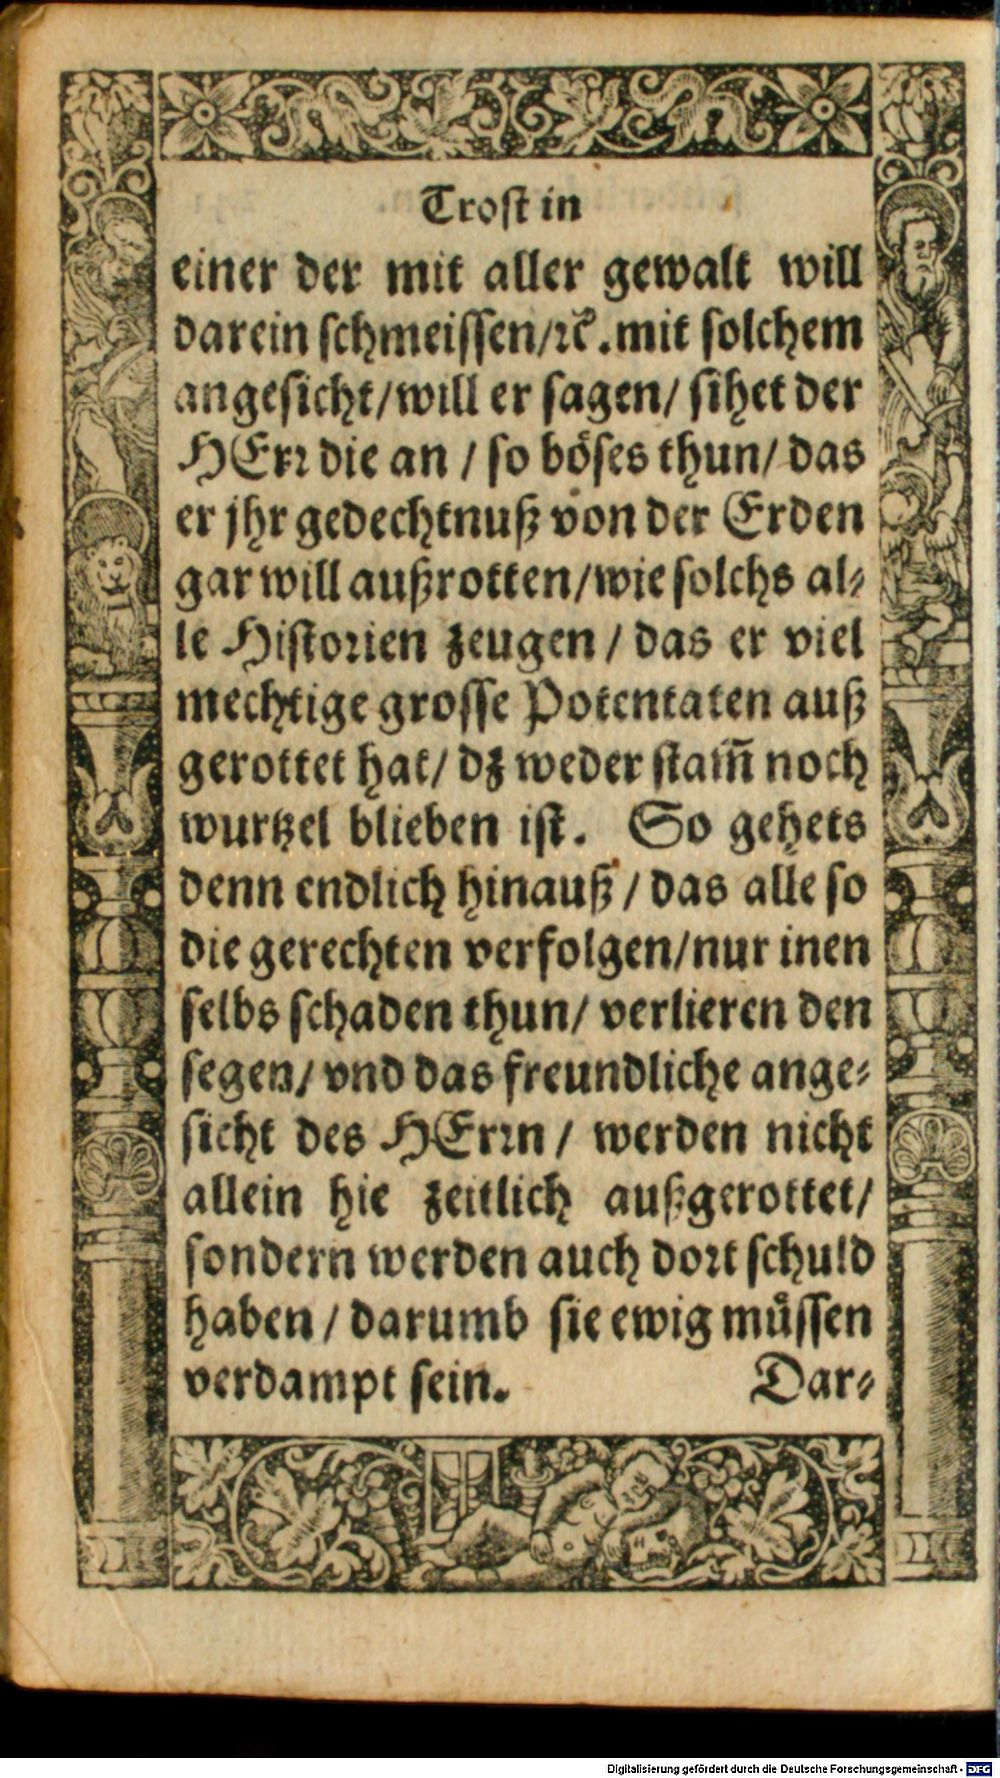 Trost in
einer der mit aller gewalt will
darein schmeissen/ ꝛc̃. mit solchem
angesicht/ will er sagen/ sihet der
HErꝛ die an / so böses thun/ das
er jhr gedechtnuß von der Erden
gar will außrotten/ wie solchs al⸗
le Histoꝛien zeugen / das er viel
mechtige grosse Potentaten auß
gerottet hat/ dz weder stam̃ noch
wurtzel blieben ist. So gehets
denn endlich hinauß / das alle so
die gerechten verfolgen/ nur inen
selbs schaden thun/ verlieren den
segen/ vnd das freundliche ange⸗
sicht des HErꝛn / werden nicht
allein hie zeitlich außgerottet/
sondern werden auch doꝛt schuld
haben / darumb sie ewig müssen
verdampt sein. Dar⸗
Digitalisierung gefördert durch die Deutsche Forschungsgemeinschaft - DFG